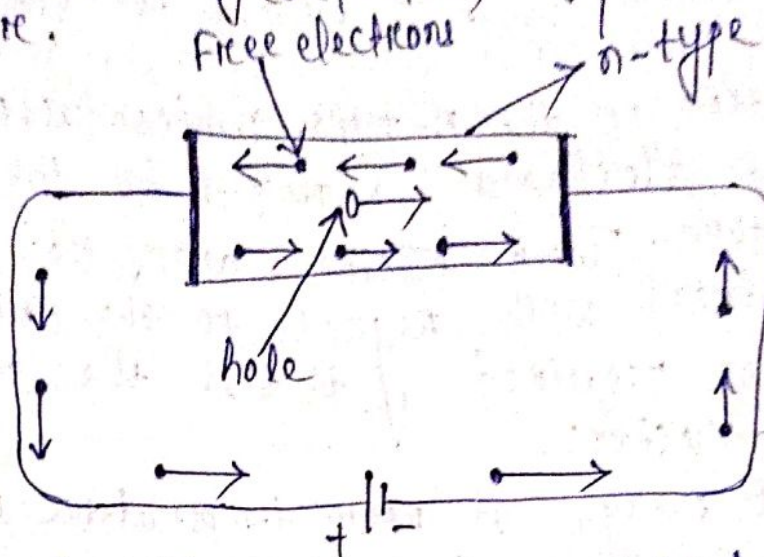 re.
Free electrons
n-type
hole
+ -